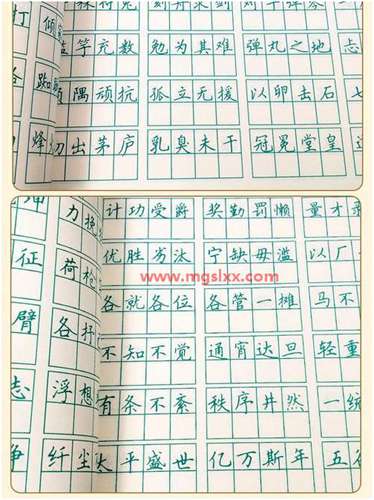 刻舟求剑
打 倾 竽充数 勉为其难 弹丸之地 志
各 隅顽抗 孤立无援 以卵击石
蜂 初出茅庐 乳臭未干 冠冕堂皇
力挽 计功受爵 奖勤罚懒 量才
征 优胜劣汰 宁缺毋滥 以厂
www.mgslxx.com
荷枪 各就各位 各管一摊 马不
臂 各抒 不知不觉 通宵达旦 轻重
志 浮想 有条不紊 秩序井然 一统
争 纤尘 太平盛世 亿万斯年 五